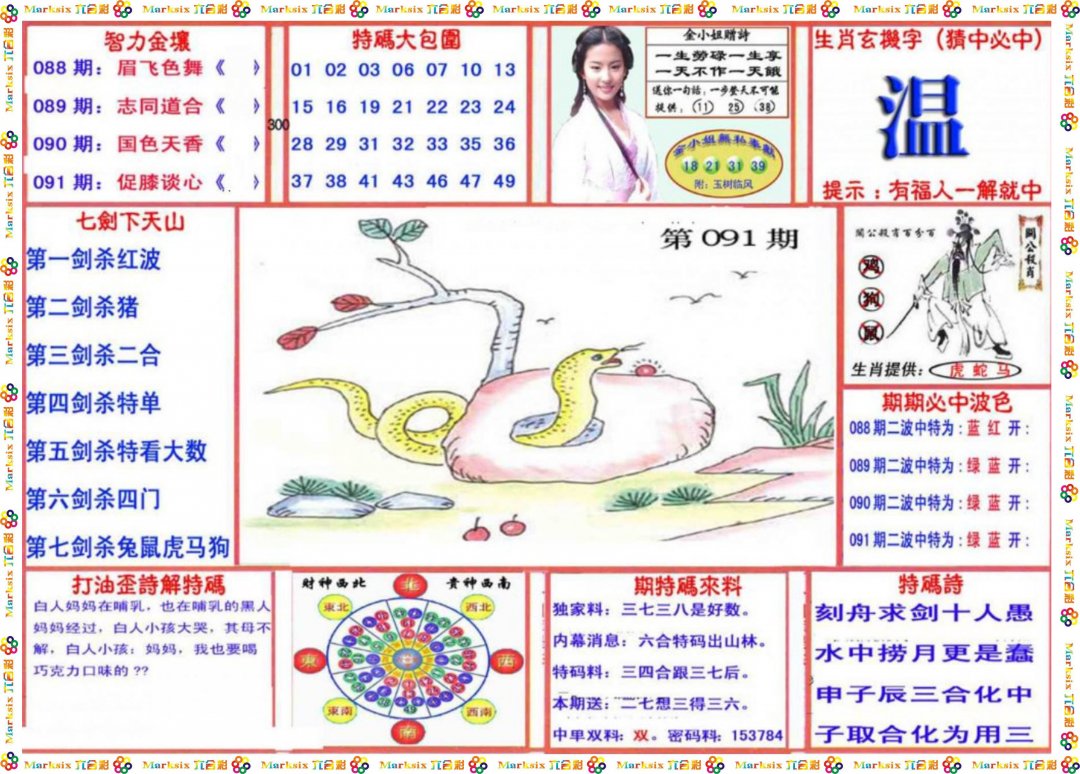 Marksix 六合彩
智力金壤
088 期：眉飞色舞《 》
089 期：志同道合《 》
090 期：国色天香《 》
091 期：促膝谈心《 》
特碼大包圍
01 02 03 06 07 10 13
15 16 19 21 22 23 24
28 29 31 32 33 35 36
37 38 41 43 46 47 49
300
金小姐赠詩
一生勞碌一生享
一天不作一天餓
送你一句话：一步登天不可能
提供：11 25 38
金小姐無私奉獻
18 21 31 39
附：玉树临风
生肖玄機字（猜中必中）
温
提示：有福人一解就中
七劍下天山
第一剑杀红波
第二剑杀猪
第三剑杀二合
第四剑杀特单
第五剑杀特看大数
第六剑杀四门
第七剑杀兔鼠虎马狗
第 091 期
關公殺肖百分百
鸡
狗
鼠
關公殺肖
生肖提供：虎 蛇 马
期期必中波色
088 期二波中特为：蓝 红 开：
089 期二波中特为：绿 蓝 开：
090 期二波中特为：绿 蓝 开：
091 期二波中特为：绿 蓝 开：
打油歪詩解特碼
白人妈妈在哺乳，也在哺乳的黑人
妈妈经过，白人小孩大哭，其母不
解，白人小孩：妈妈，我也要喝
巧克力口味的 ??
财神西北
贵神西南
北
東北
西北
東
西
東南
西南
南
期特碼來料
独家料：三七三八是好数。
内幕消息：六合特码出山林。
特码料：三四合跟三七后。
本期送：二七想三得三六。
中单双料：双。密码料：153784
特碼詩
刻舟求剑十人愚
水中捞月更是蠢
申子辰三合化中
子取合化为用三